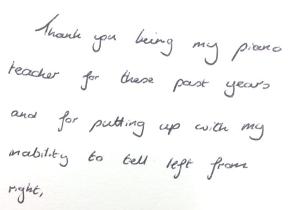 Thank you being my piano
teacher for these past years
and for putting up with my
inability to tell left from
right,